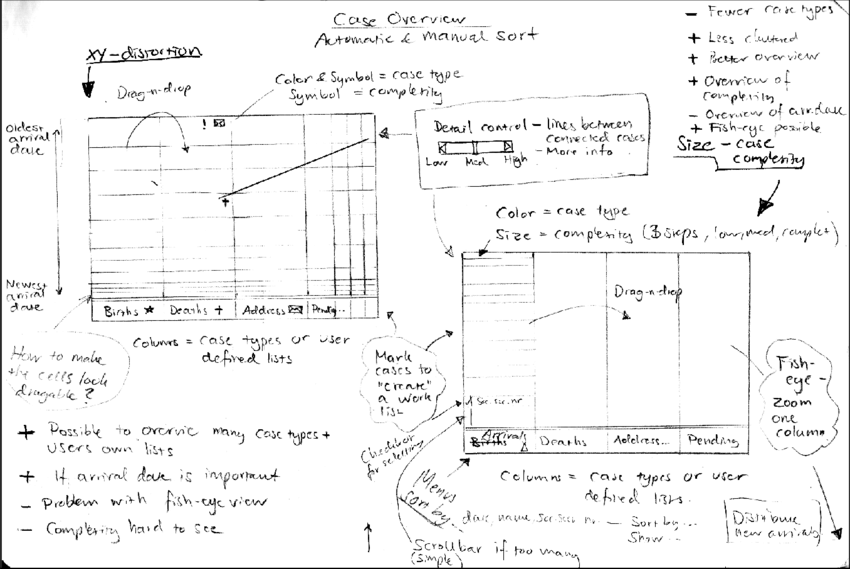 Case Overview
Automatic & Manual Sort
XY-distortion
Drag-n-drop
Color & Symbol = case type
Symbol = complexity
Oldest
arrival
date
Newest
arrival
date
!
+
Births ★ Deaths + Address ✉ Pending...
Columns = case types or user
defined lists
How to make
the cells look
dragable?
+ Possible to overvie many case types +
users own lists
+ If arrival date is important
- Problem with fish-eye view
- Complexity hard to see
Detail control - lines between
connected cases
- More info
Low Med High
- Fewer case types
+ Less cluttered
+ Better overview
+ Overview of
complexity
- Overview of arr.date
+ Fish-eye possible
Size - case
complexity
Color = case type
Size = complexity (3 steps, low, med, complex)
Drag-n-drop
Mark
cases to
"create"
a work
list
Checkbox
for selecting
Soc.sec.nr
Births Arrivals Deaths Address... Pending
Fish-
eye -
zoom
one
column
Columns = case types or user
defined lists.
Menus
sort by...
date, name, Soc.sec nr. - Sort by...
Show...
Scrollbar if too many
(simple)
Distribute
new arrivals